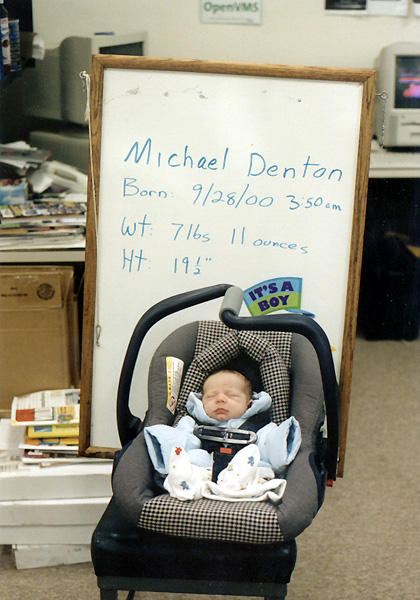 OpenVMS
Michael Denton
Born: 9/28/00 3:50am
Wt: 7lbs 11 ounces
Ht: 19½"
IT'S A
BOY